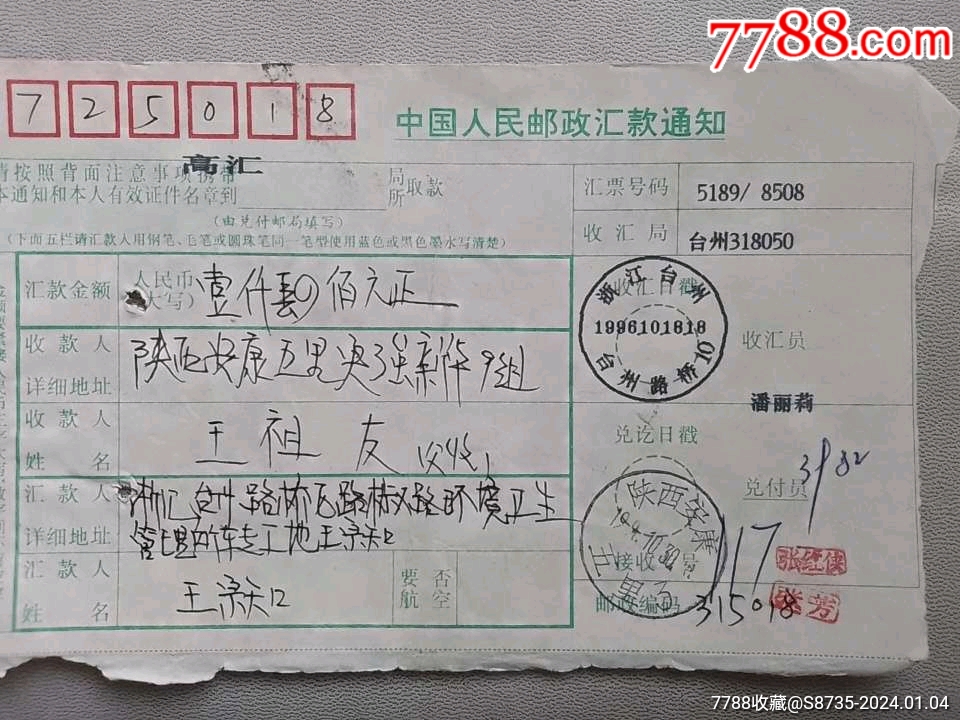 7788.com
725018
中国人民邮政汇款通知
高汇
请按照背面注意事项携带
本通知和本人有效证件名章到
局
所
取款
(由兑付邮局填写)
(下面五栏请汇款人用钢笔、毛笔或圆珠笔同一笔型使用蓝色或黑色墨水写清楚)
汇票号码
5189/ 8508
收汇局
台州318050
汇款金额
人民币
(大写)
壹仟 佰元正
收汇日戳
浙江台州
1996101818
台州路桥
收汇员
潘丽莉
收款人
详细地址
陕西安康五里 9组
收款人
姓名
王祖友 收
兑讫日戳
兑付员
汇款人
详细地址
浙江台州路桥 路 路环境卫生
管理所车 工地王
陕西安康
五里
接收 号
17
张红侠
汇款人
姓名
王
要否
航空
邮政编码
315018
张芳
7788收藏@S8735-2024.01.04